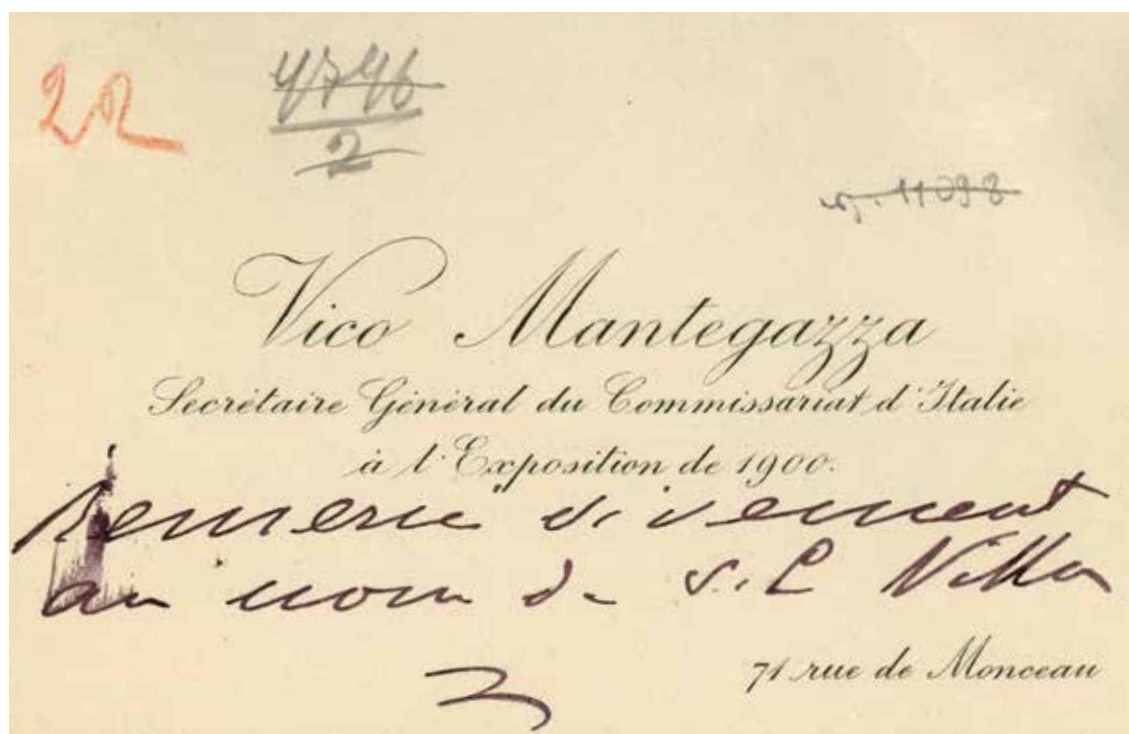 22
4746
2
11098
Vico Mantegazza
Secrétaire Général du Commissariat d'Italie
à l'Exposition de 1900.
Remercie vivement
au nom de S. E Villa
71 rue de Monceau